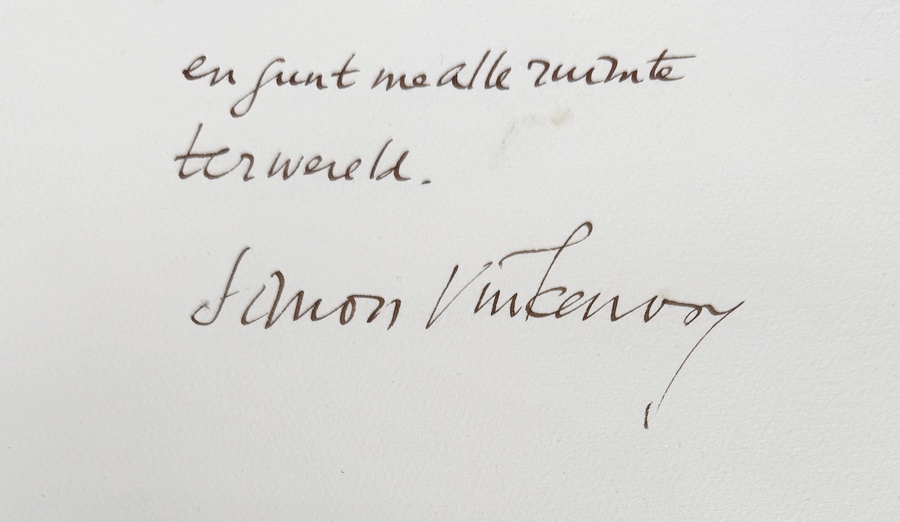 en gunt me alle ruimte
ter wereld.
Simon Vinkenoog